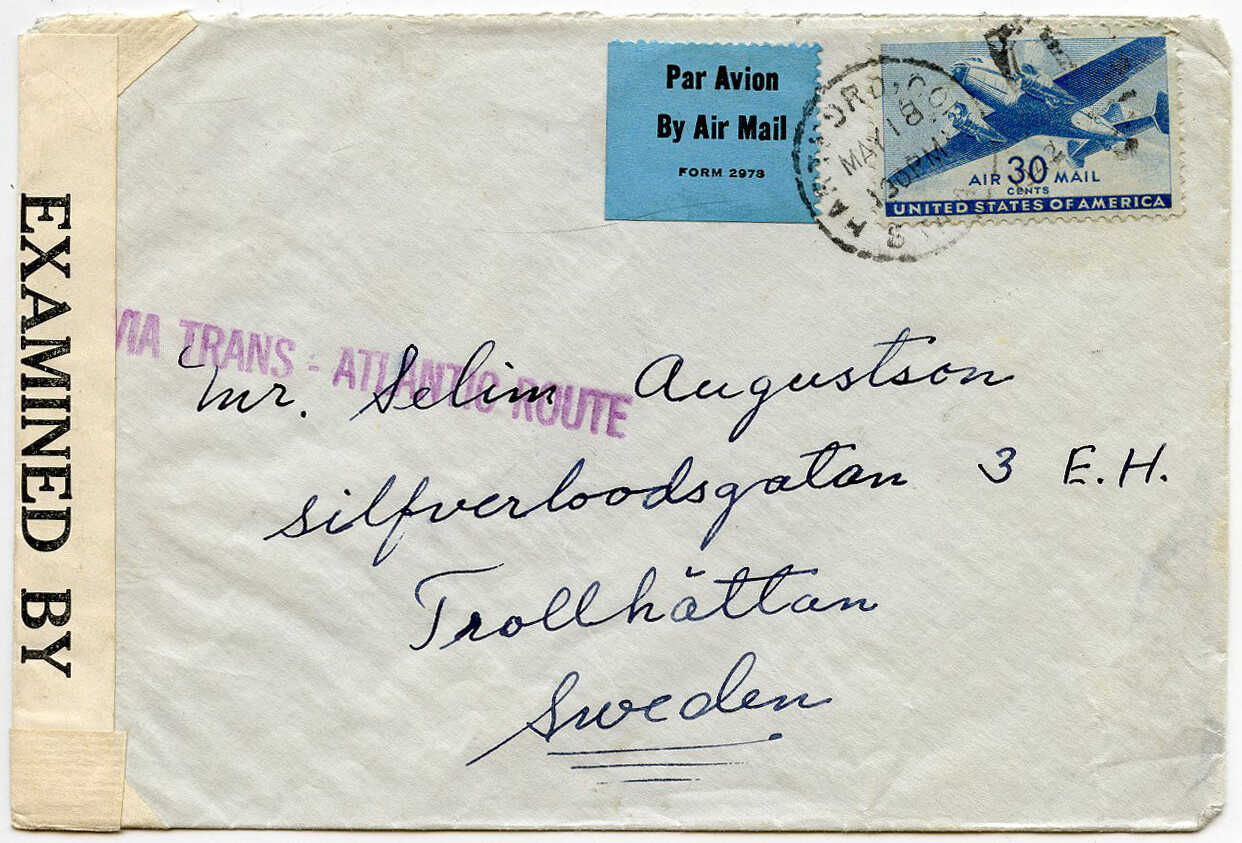 EXAMINED BY
Par Avion
By Air Mail
FORM 2978
HARTFORD, CONN
MAY 18
130PM
AIR 30 MAIL
CENTS
UNITED STATES OF AMERICA
VIA TRANS - ATLANTIC ROUTE
Mr. Selim Augustson
Silfverloodsgatan 3 E.H.
Trollhättan
Sweden